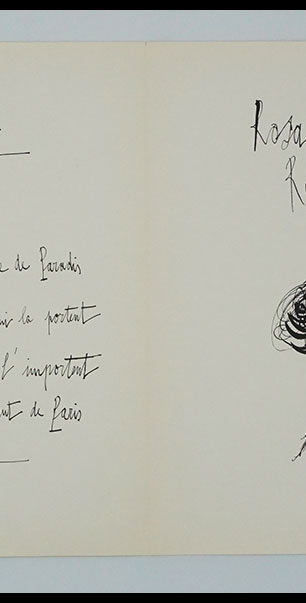 e de Paradis
ui la portent
l'importent
ut de Paris
Rosa
R